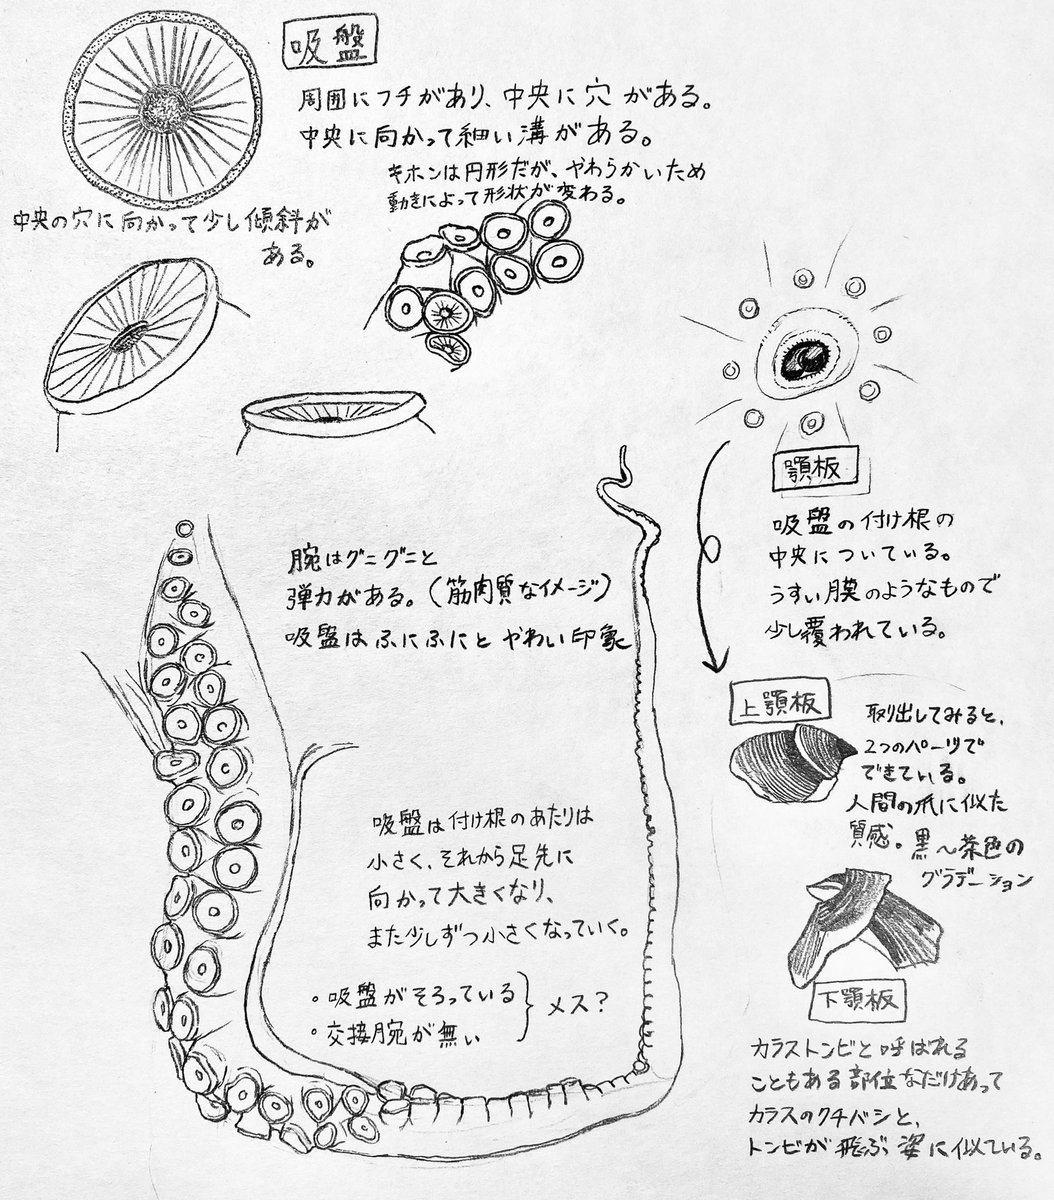 吸盤
周囲にフチがあり、中央に穴がある。
中央に向かって細い溝がある。
キホンは円形だが、やわらかいため
動きによって形状が変わる。
中央の穴に向かって少し傾斜が
ある。
顎板
吸盤の付け根の
中央についている。
うすい膜のようなもので
少し覆われている。
腕はグニグニと
弾力がある。(筋肉質なイメージ)
吸盤はふにふにとやわい印象
上顎板
取り出してみると、
2つのパーツで
できている。
人間の爪に似た
質感。黒〜茶色の
グラデーション
吸盤は付け根のあたりは
小さく、それから足先に
向かって大きくなり、
また少しずつ小さくなっていく。
・吸盤がそろっている
・交接腕が無い
メス?
下顎板
カラストンビと呼ばれる
こともある部位なだけあって
カラスのクチバシと、
トンビが飛ぶ姿に似ている。